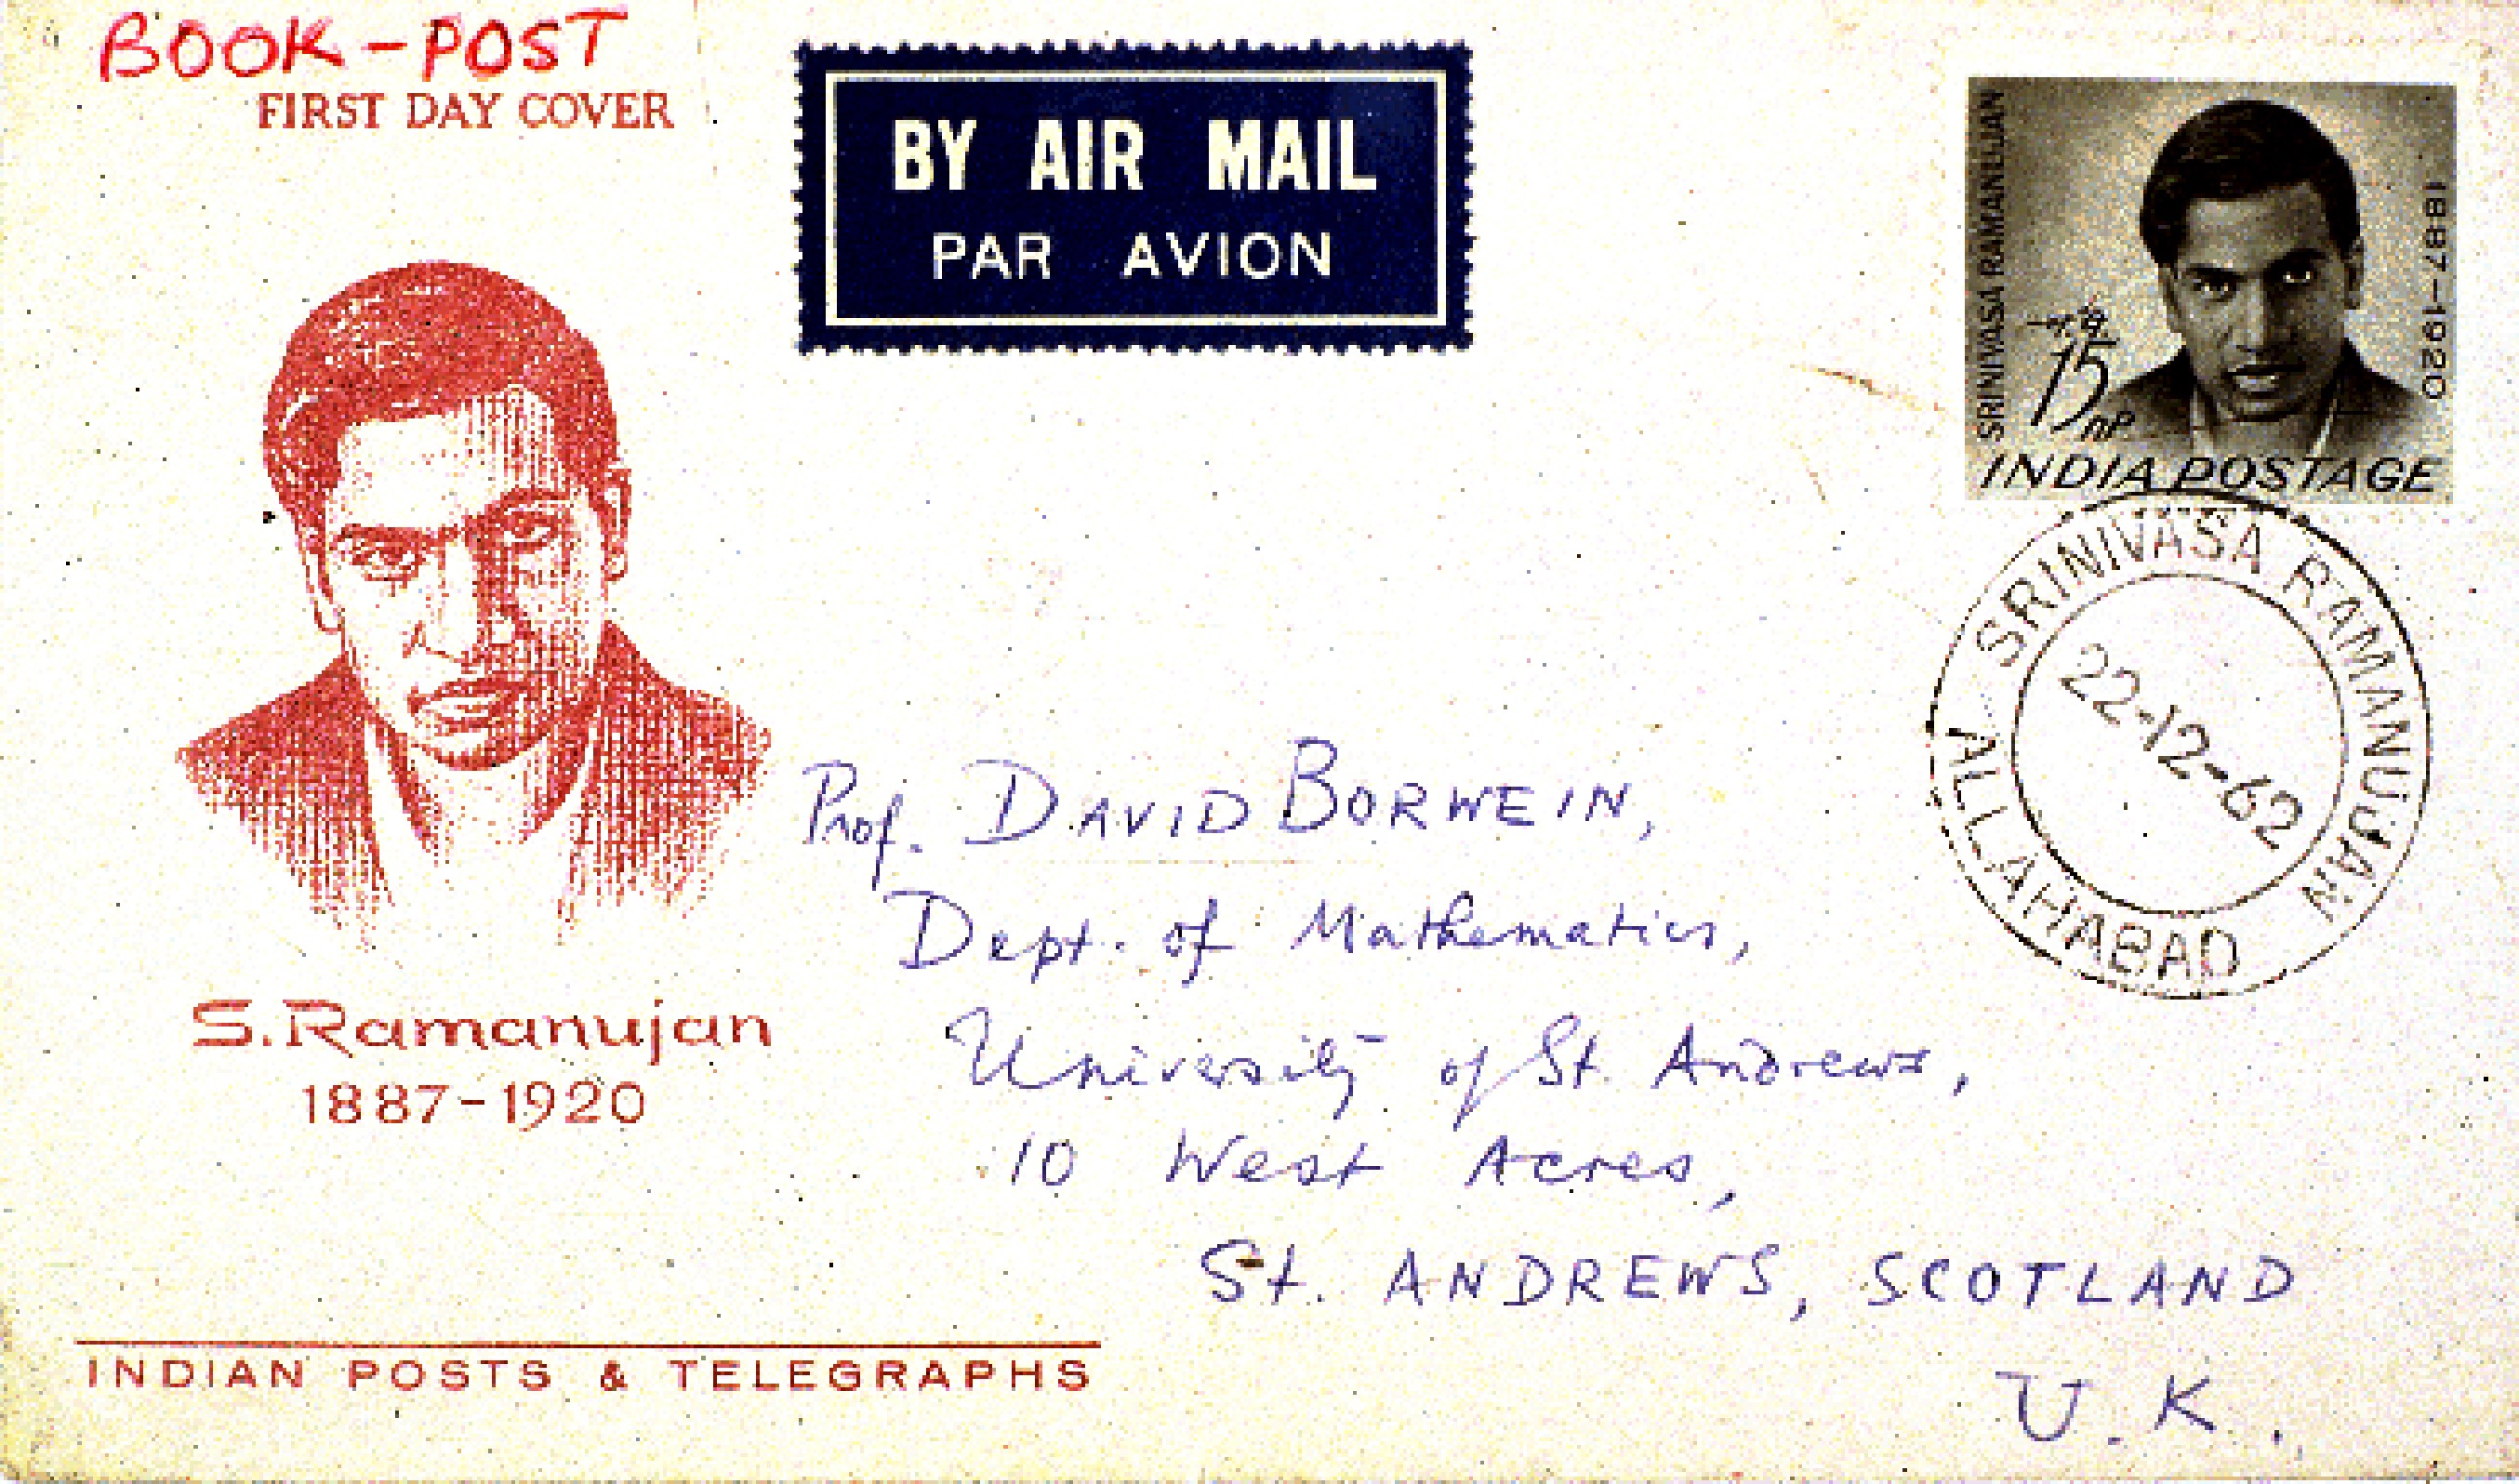 BOOK-POST
FIRST DAY COVER
BY AIR MAIL
PAR AVION
SRINIVASA RAMANUJAN
1887-1920
न.पै.
15 nP
INDIA POSTAGE
SRINIVASA RAMANUJAN
ALLAHABAD
22-12-62
S.Ramanujan
1887-1920
Prof. DAVID BORWEIN,
Dept. of Mathematics,
University of St. Andrews,
10 West Acres,
St. ANDREWS, SCOTLAND
U.K.
INDIAN POSTS & TELEGRAPHS